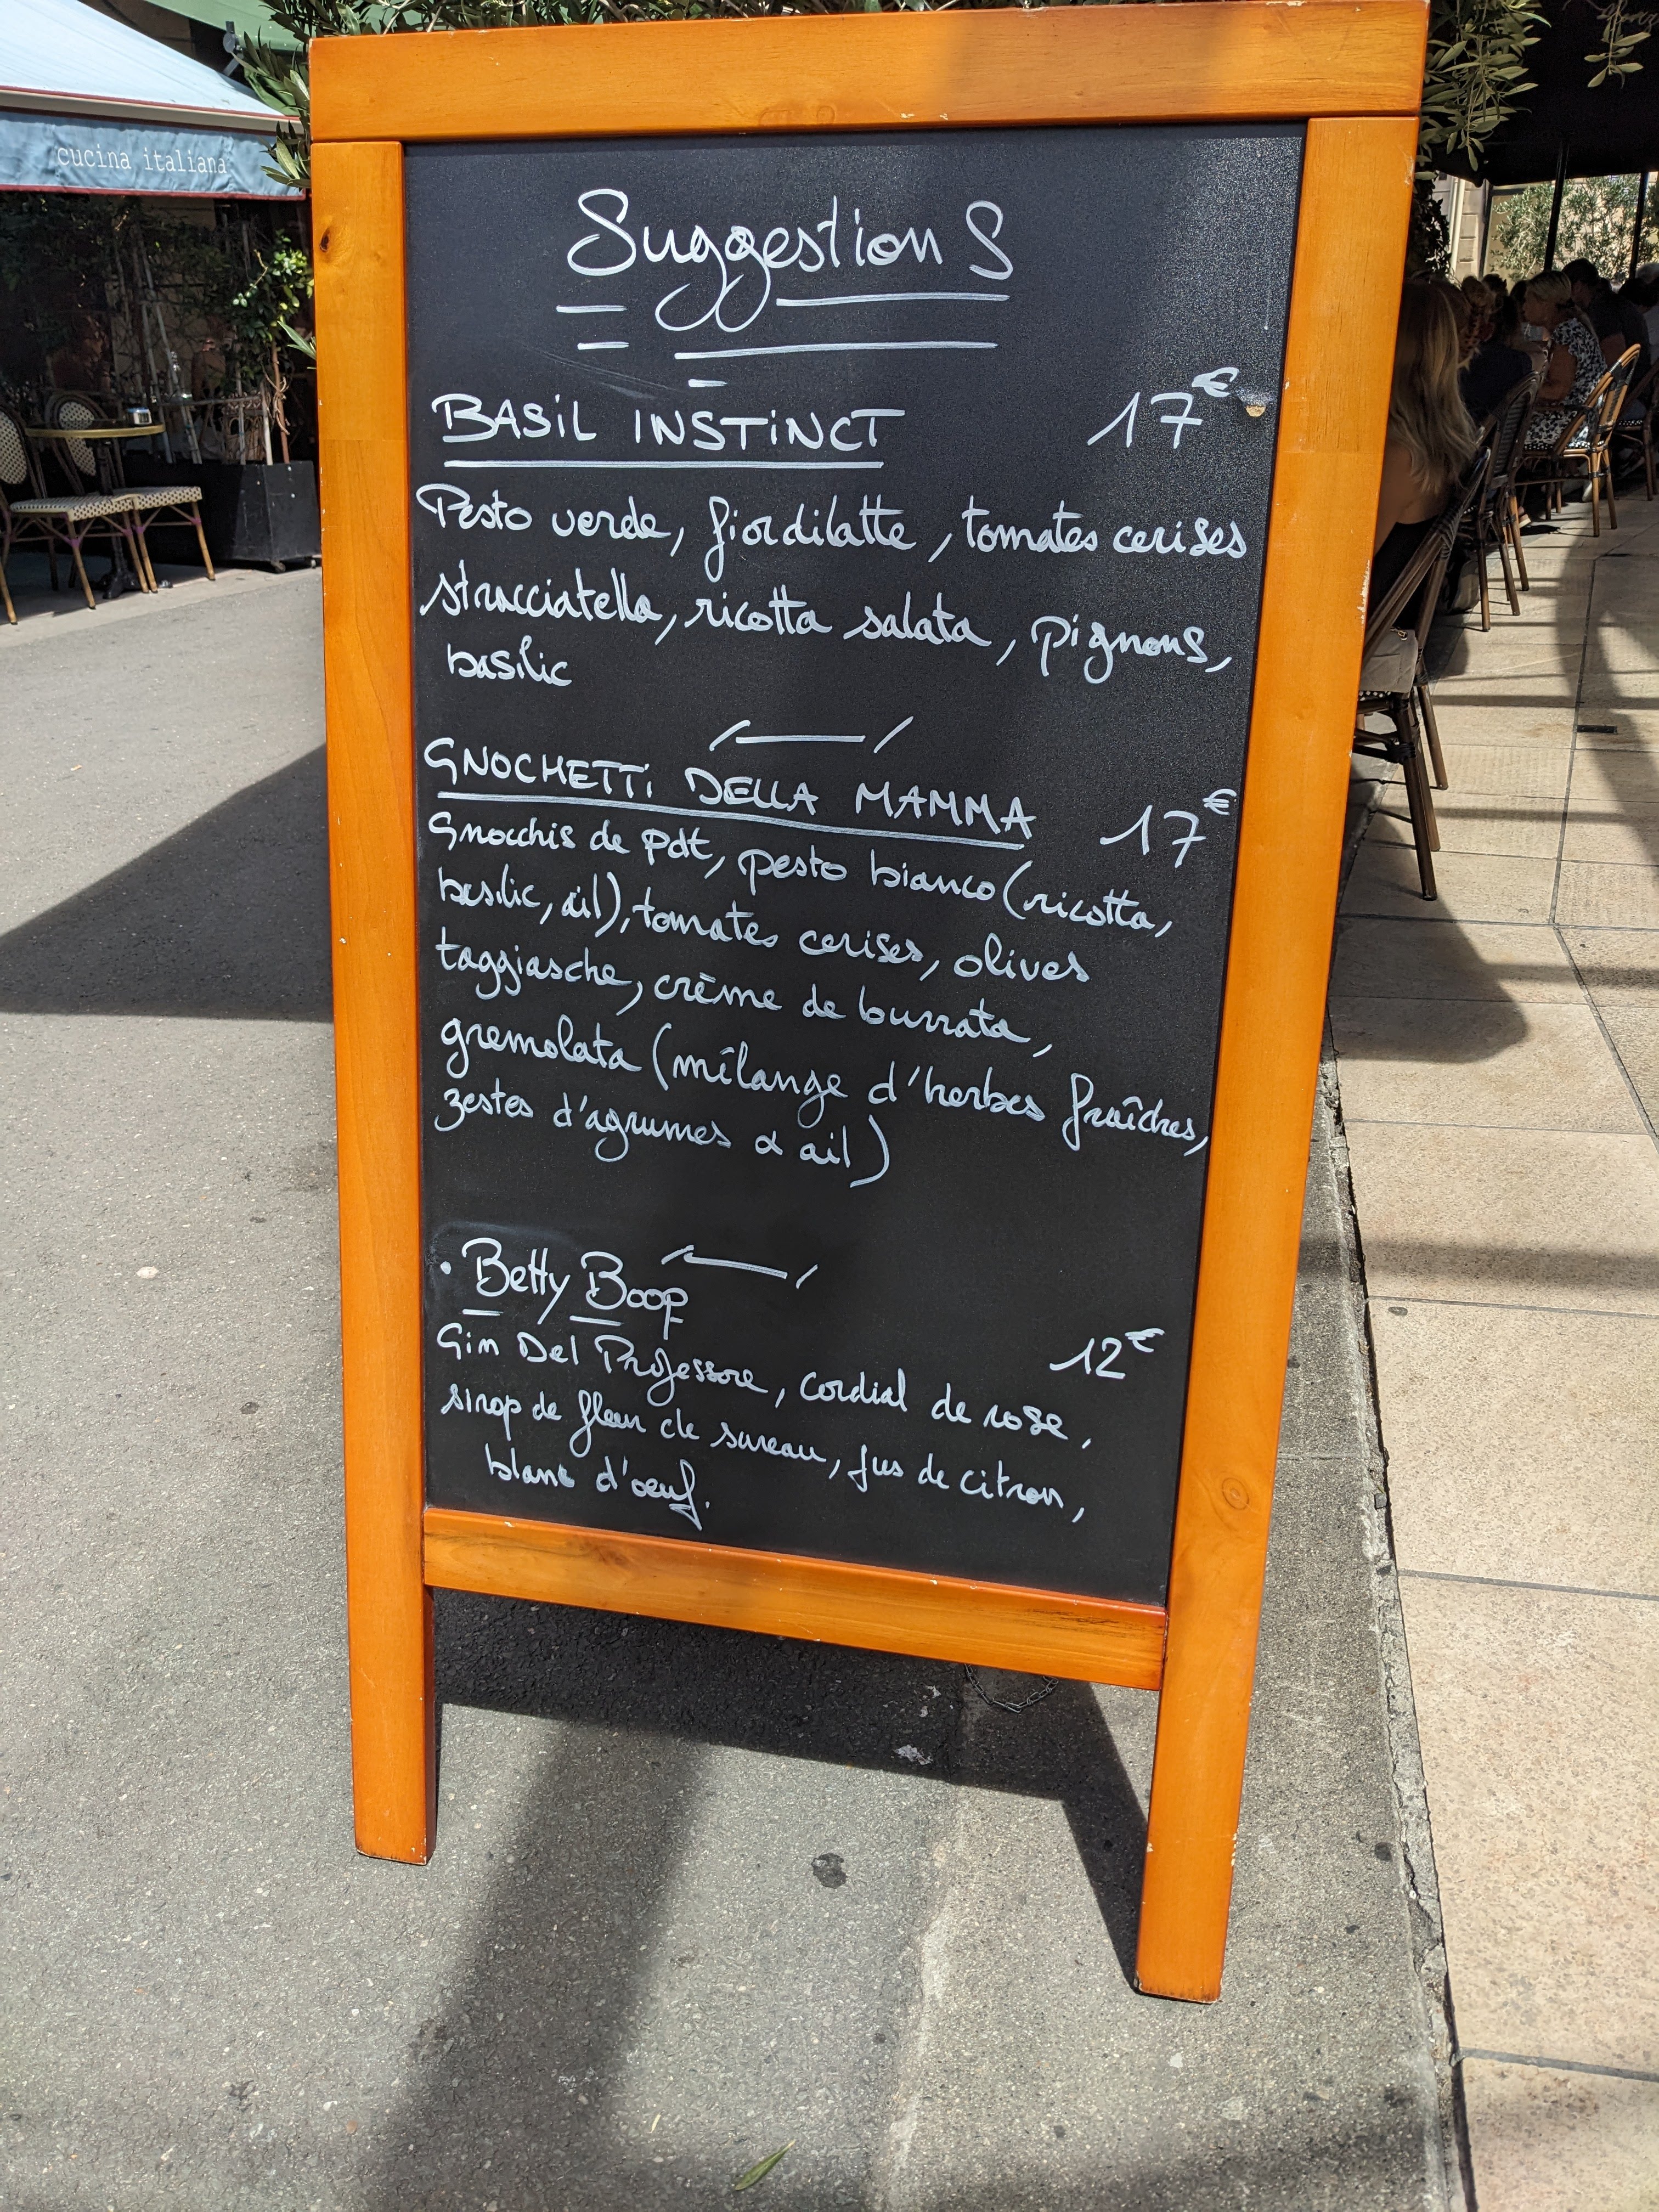 cucina italiana
SuggestionS
BASIL INSTINCT 17€
Pesto verde, fiordilatte, tomates cerises
stracciatella, ricotta salata, pignons,
basilic
GNOCHETTI DELLA MAMMA 17€
Gnocchis de pdt, pesto bianco (ricotta,
basilic, ail), tomates cerises, olives
taggiasche, crème de burrata,
gremolata (mélange d'herbes fraîches,
zestes d'agrumes & ail)
• Betty Boop
12€
Gin Del Professore, cordial de rose,
sirop de fleur de sureau, jus de citron,
blanc d'oeuf.